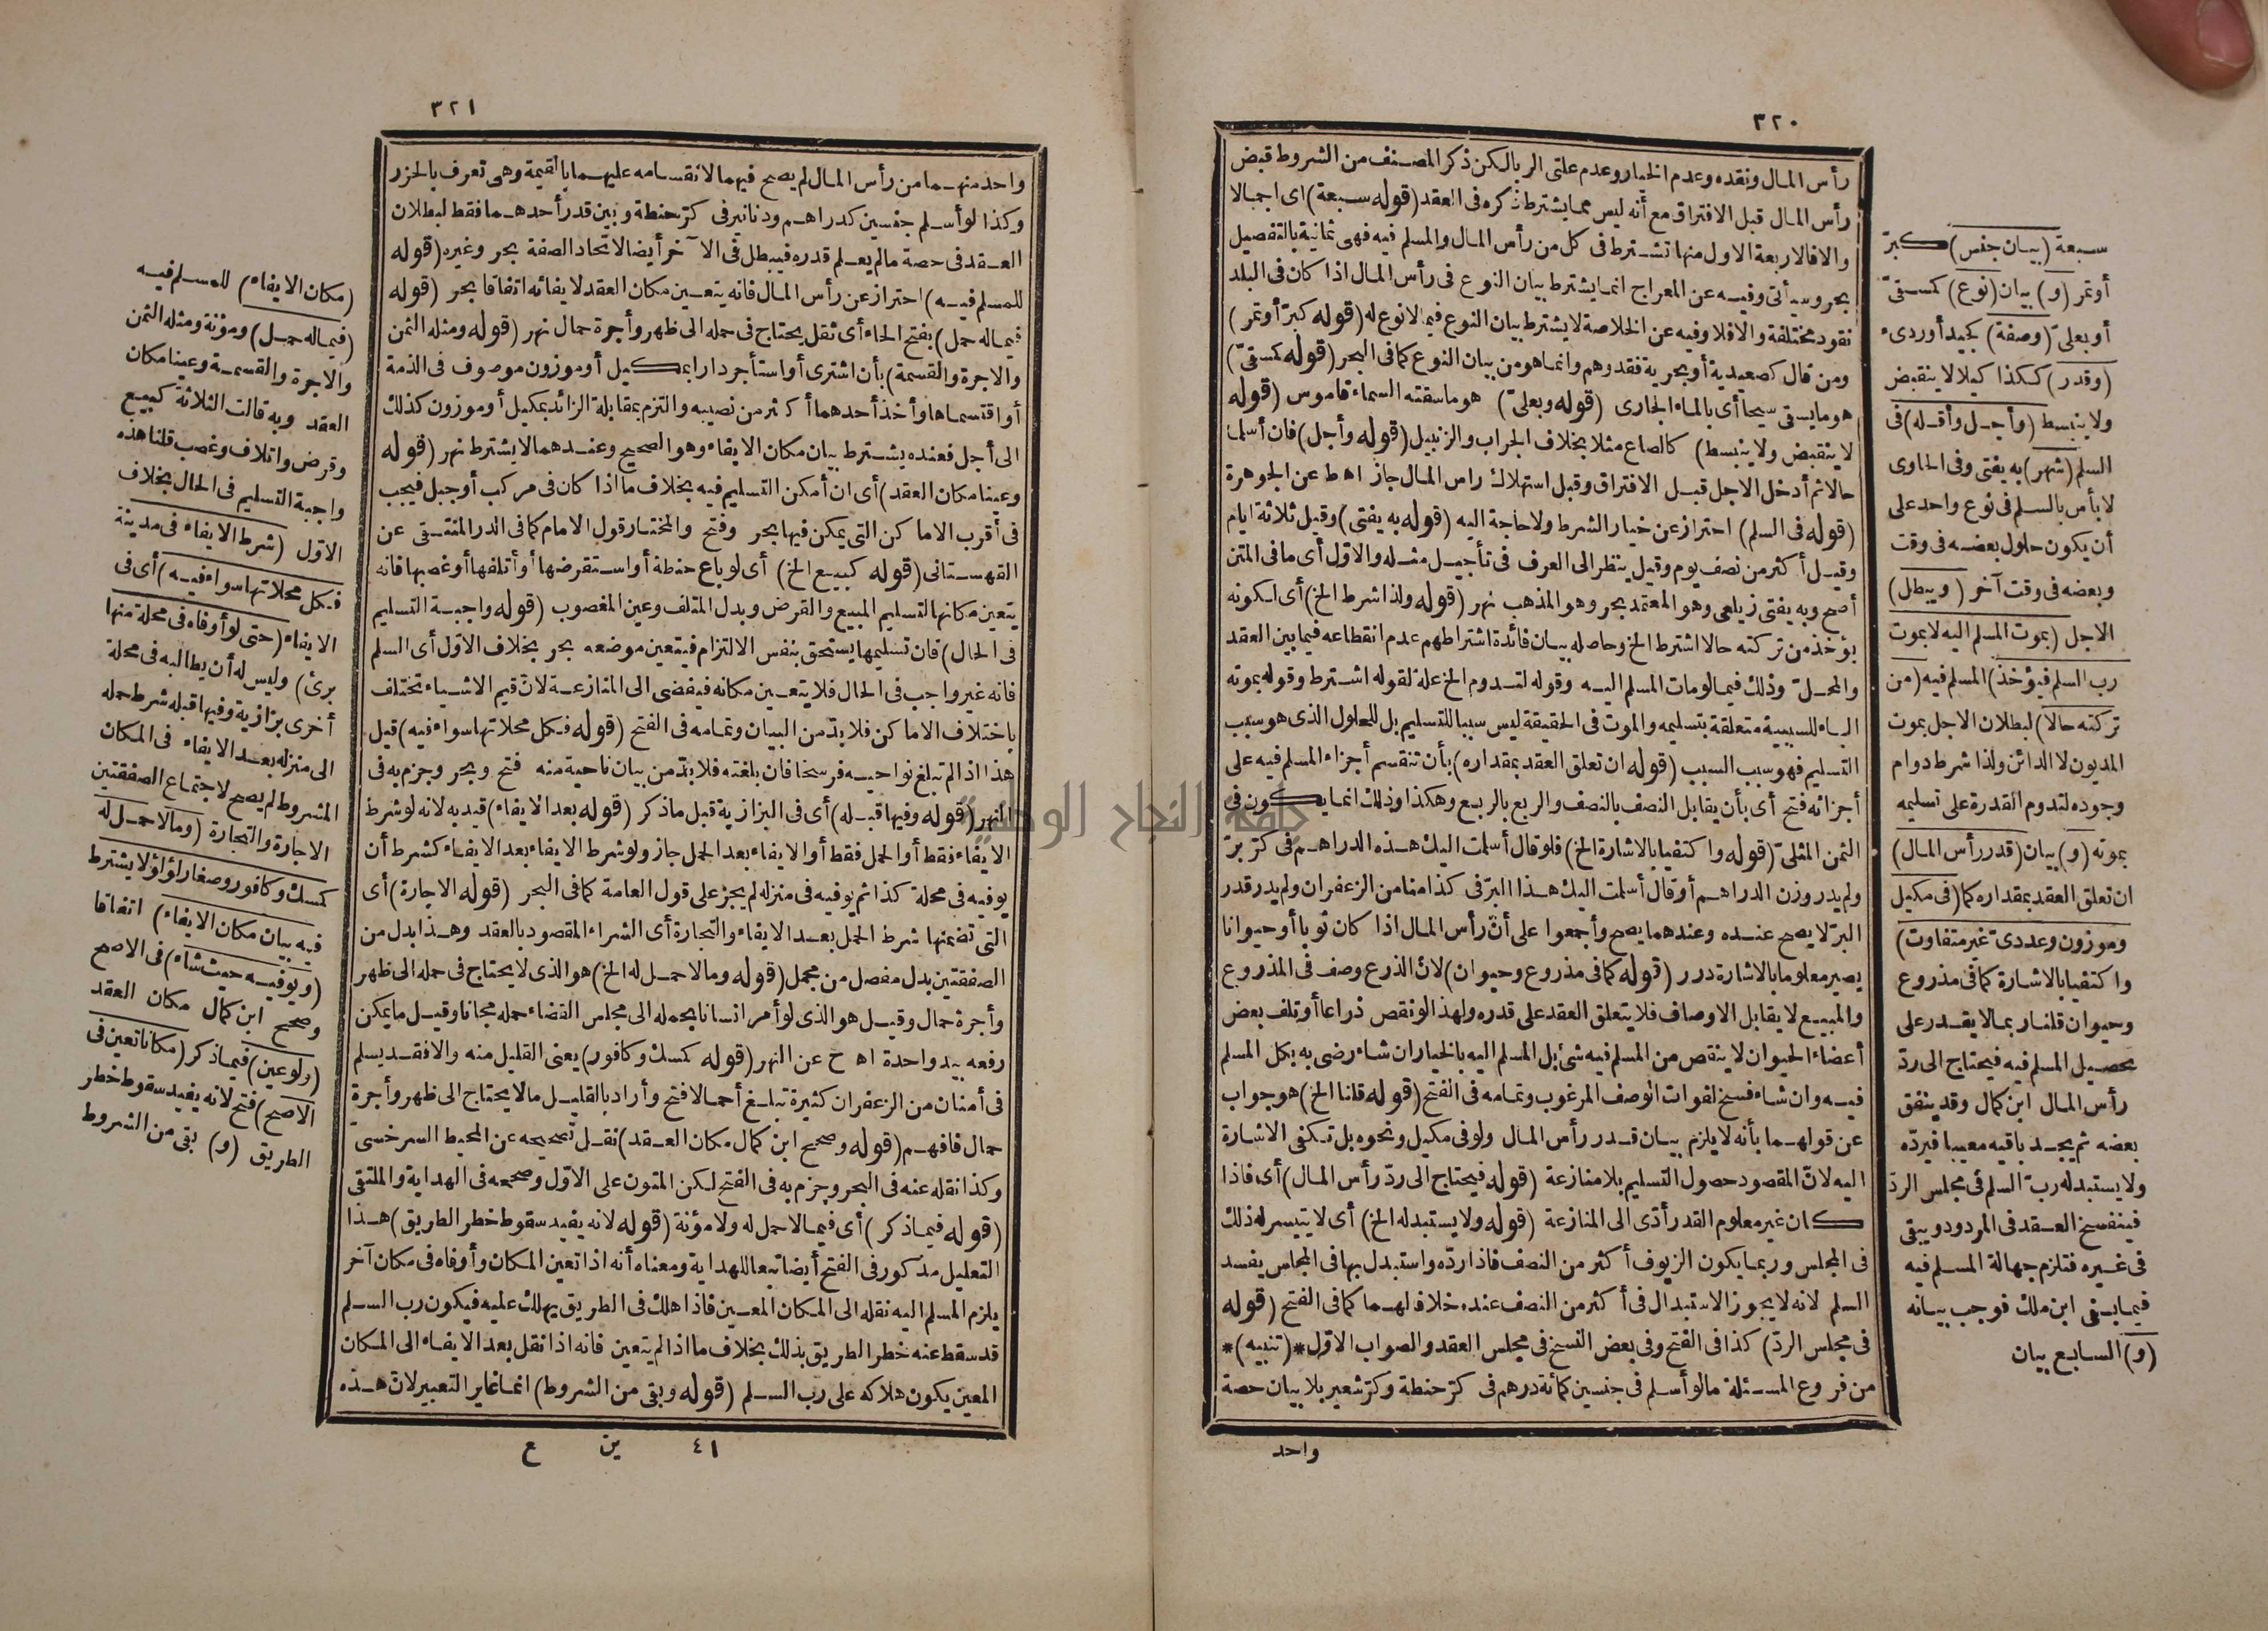 ٣٢٠
رأس المال ونقده وعدم الخيار وعدم علتى الربا لكن ذكر المصنف من الشروط قبض
رأس المال قبل الافتراق مع أنه ليس مما يشترط ذكره فى العقد (قوله سبعة) اى اجمالا
والا فالاربعة الاول منها تشترط فى كل من رأس المال والمسلم فيه فهى ثمانية بالتفصيل
بحر وسيأتى وفيه عن المعراج انما يشترط بيان النوع فى رأس المال اذا كان فى البلد
نقود مختلفة والا فلا وفيه عن الخلاصة لا يشترط بيان النوع فيما لا نوع له (قوله كبرّ أو تمر)
ومن قال كصعيدية أو بحرية فقد وهم وانما هو من بيان النوع كما فى البحر (قوله كمسقىّ)
هو ما يسقى سيحا أى بالماء الجارى (قوله وبعلىّ) هو ما سقته السماء قاموس (قوله
لا ينقبض ولا ينبسط) كالصاع مثلا بخلاف الجراب والزنبيل (قوله وأجل) فان أسلما
حالا ثم أدخل الاجل قبل الافتراق وقبل استهلاك راس المال جاز اه ط عن الجوهرة
(قوله فى السلم) احتراز عن خيار الشرط ولا حاجة اليه (قوله به يفتى) وقيل ثلاثة ايام
وقيل أكثر من نصف يوم وقيل ينظر الى العرف فى تأجيل مثله والاوّل أى ما فى المتن
أصح وبه يفتى زيلعى وهو المعتمد بحر وهو المذهب نهر (قوله ولذا شرط الخ) أى لكونه
يؤخذ من تركته حالا اشترط الخ وحاصله بيان فائدة اشتراطهم عدم انقطاعه فيما بين العقد
والمحلّ وذلك فيما لو مات المسلم اليه وقوله لتدوم الخ علة لقوله اشترط وقوله بموته
الباء للسببية متعلقة بتسليمه والموت فى الحقيقة ليس سببا للتسليم بل للحلول الذى هو سبب
التسليم فهو سبب السبب (قوله ان تعلق العقد بمقداره) بأن تنقسم أجزاء المسلم فيه على
أجزائه فتح أى بأن يقابل النصف بالنصف والربع بالربع وهكذا وذلك انما يكون فى
الثمن المثلىّ (قوله واكتفيا بالاشارة الخ) فلو قال أسلمت اليك هذه الدراهم فى كرّ برّ
ولم يدر وزن الدراهم أو قال أسلمت اليك هذا البرّ فى كذا منا من الزعفران ولم يدر قدر
البرّ لا يصح عنده وعندهما يصح وأجمعوا على أنّ رأس المال اذا كان ثوبا أو حيوانا
يصير معلوما بالاشارة درر (قوله كما فى مذروع وحيوان) لانّ الذرع وصف فى المذروع
والمبيع لا يقابل الاوصاف فلا يتعلق العقد على قدره ولهذا لو نقص ذراعا أو تلف بعض
أعضاء الحيوان لا ينقص من المسلم فيه شئ بل المسلم اليه بالخيار ان شاء رضى به بكل المسلم
فيه وان شاء فسخ لفوات الوصف المرغوب وتمامه فى الفتح (قوله قلنا الخ) هو جواب
عن قولهما بأنه لا يلزم بيان قدر رأس المال ولو فى مكيل ونحوه بل تكفى الاشارة
اليه لانّ المقصود حصول التسليم بلا منازعة (قوله فيحتاج الى ردّ رأس المال) أى فاذا
كان غير معلوم القدر أدّى الى المنازعة (قوله ولا يستبدله الخ) أى لا يتيسر له ذلك
فى المجلس وربما يكون الزيوف أكثر من النصف فاذا ردّه واستبدل بها فى المجلس يفسد
السلم لانه لا يجوز الاستبدال فى أكثر من النصف عنده خلافا لهما كما فى الفتح (قوله
فى مجلس الردّ) كذا فى الفتح وفى بعض النسخ فى مجلس العقد والصواب الاوّل *(تنبيه)*
من فروع المسئلة ما لو أسلم فى جنسين كمائة درهم فى كرّ حنطة وكرّ شعير بلا بيان حصة
واحد
سبعة (بيان جنس) كبرّ
أو تمر (و) بيان (نوع) كمسقىّ
أو بعلىّ (وصفة) كجيد أو ردىء
(وقدر) ككذا كيلا لا ينقبض
ولا ينبسط (وأجل وأقله) فى
السلم (شهر) به يفتى وفى الحاوى
لا بأس بالسلم فى نوع واحد على
أن يكون حلول بعضه فى وقت
وبعضه فى وقت آخر (ويبطل)
الاجل (بموت المسلم اليه لا بموت
رب السلم فيؤخذ) المسلم فيه (من
تركته حالا) لبطلان الاجل بموت
المديون لا الدائن ولذا شرط دوام
وجوده لتدوم القدرة على تسليمه
بموته (و) بيان (قدر رأس المال)
ان تعلق العقد بمقداره كما (فى مكيل
وموزون وعددىّ غير متفاوت)
واكتفيا بالاشارة كما فى مذروع
وحيوان قلنا ربما لا يقدر على
تحصيل المسلم فيه فيحتاج الى ردّ
رأس المال ابن كمال وقد ينفق
بعضه ثم يجد باقيه معيبا فيردّه
ولا يستبدله ربّ السلم فى مجلس الردّ
فينفسخ العقد فى المردود ويبقى
فى غيره فتلزم جهالة المسلم فيه
فيما بقى ابن ملك فوجب بيانه
(و) السابع بيان
٣٢١
واحد منهما من رأس المال لم يصح فيهما لانقسامه عليهما بالقيمة وهى تعرف بالحزر
وكذا لو أسلم جنسين كدراهم ودنانير فى كرّ حنطة وبين قدر أحدهما فقط لبطلان
العقد فى حصة ما لم يعلم قدره فيبطل فى الآخر أيضا لاتحاد الصفقة بحر وغيره (قوله
للمسلم فيه) احتراز عن رأس المال فانه يتعين مكان العقد لايفائه اتفاقا بحر (قوله
فيما له حمل) بفتح الحاء أى ثقل يحتاج فى حمله الى ظهر وأجرة حمال نهر (قوله ومثله الثمن
والاجرة والقسمة) بأن اشترى أو استأجر دارا بمكيل أو موزون موصوف فى الذمة
أو اقتسماها وأخذ أحدهما أكثر من نصيبه والتزم بمقابلة الزائد بمكيل أو موزون كذلك
الى أجل فعنده يشترط بيان مكان الايفاء وهو الصحيح وعندهما لا يشترط نهر (قوله
وعينا مكان العقد) أى ان أمكن التسليم فيه بخلاف ما اذا كان فى مركب أو جبل فيجب
فى أقرب الاماكن التى يمكن فيها بحر وفتح والمختار قول الامام كما فى الدر المنتقى عن
القهستانى (قوله كبيع الخ) أى لو باع حنطة أو استقرضها أو أتلفها أو غصبها فانه
يتعين مكانها لتسليم المبيع والقرض وبدل المتلف وعين المغصوب (قوله واجبة التسليم
فى الحال) فان تسليمها يستحق بنفس الالتزام فيتعين موضعه بحر بخلاف الاوّل أى السلم
فانه غير واجب فى الحال فلا يتعين مكانه فيفضى الى المنازعة لانّ قيم الاشياء تختلف
باختلاف الاماكن فلا بدّ من البيان وتمامه فى الفتح (قوله فكل محلاتها سواء فيه) قيل
هذا اذا لم تبلغ نواحيه فرسخا فان بلغته فلا بدّ من بيان ناحية منه فتح وبحر وجزم به فى
النهر (قوله وفيها قبله) أى فى البزازية قبل ما ذكر (قوله بعد الايفاء) قيد به لانه لو شرط
الايفاء فقط أو الحمل فقط أو الايفاء بعد الحمل جاز ولو شرط الايفاء بعد الايفاء كشرط أن
يوفيه فى محلة كذا ثم يوفيه فى منزله لم يجز على قول العامة كما فى البحر (قوله الاجارة) أى
التى تضمنها شرط الحمل بعد الايفاء والتجارة أى الشراء المقصود بالعقد وهذا بدل من
الصفقتين بدل مفصل من مجمل (قوله وما لا حمل له الخ) هو الذى لا يحتاج فى حمله الى ظهر
وأجرة حمال وقيل هو الذى لو أمر انسانا بحمله الى مجلس القضاء حمله مجانا وقيل ما يمكن
رفعه بيد واحدة اه ح عن النهر (قوله كمسك وكافور) يعنى القليل منه والا فقد يسلم
فى أمنان من الزعفران كثيرة تبلغ أحمالا فتح وأراد بالقليل ما لا يحتاج الى ظهر وأجرة
حمال فافهم (قوله وصحح ابن كمال مكان العقد) نقل تصحيحه عن المحيط السرخسىّ
وكذا نقله عنه فى البحر وجزم به فى الفتح لكن المتون على الاوّل وصححه فى الهداية والملتقى
(قوله فيما ذكر) أى فيما لا حمل له ولا مؤنة (قوله لانه يفيد سقوط خطر الطريق) هذا
التعليل مذكور فى الفتح أيضا تبعا للهداية ومعناه أنه اذا تعين المكان وأوفاه فى مكان آخر
يلزم المسلم اليه نقله الى المكان المعين فاذا هلك فى الطريق يهلك عليه فيكون رب السلم
قد سقط عنه خطر الطريق بذلك بخلاف ما اذا لم يتعين فانه اذا نقل بعد الايفاء الى المكان
المعين يكون هلاكه على رب السلم (قوله وبقى من الشروط) انما غاير التعبير لانّ هذه
٤١ ين ع
(مكان الايفاء) للمسلم فيه
(فيما له حمل) ومؤنة ومثله الثمن
والاجرة والقسمة وعينا مكان
العقد وبه قالت الثلاثة كبيع
وقرض واتلاف وغصب قلنا هذه
واجبة التسليم فى الحال بخلاف
الاوّل (شرط الايفاء فى مدينة
فكل محلاتها سواء فيه) أى فى
الايفاء (حتى لو أوفاه فى محلة منها
برئ) وليس له أن يطالبه فى محلة
أخرى بزازية وفيها قبله شرط حمله
الى منزله بعد الايفاء فى المكان
المشروط لم يصح لاجتماع الصفقتين
الاجارة والتجارة (وما لا حمل له
كمسك وكافور وصغار لؤلؤ لا يشترط
فيه بيان مكان الايفاء) اتفاقا
(ويوفيه حيث شاء) فى الاصح
وصحح ابن كمال مكان العقد
(ولو عين) فيما ذكر (مكانا تعين فى
الاصح) فتح لانه يفيد سقوط خطر
الطريق (و) بقى من الشروط
جامعة النجاح الوطنية